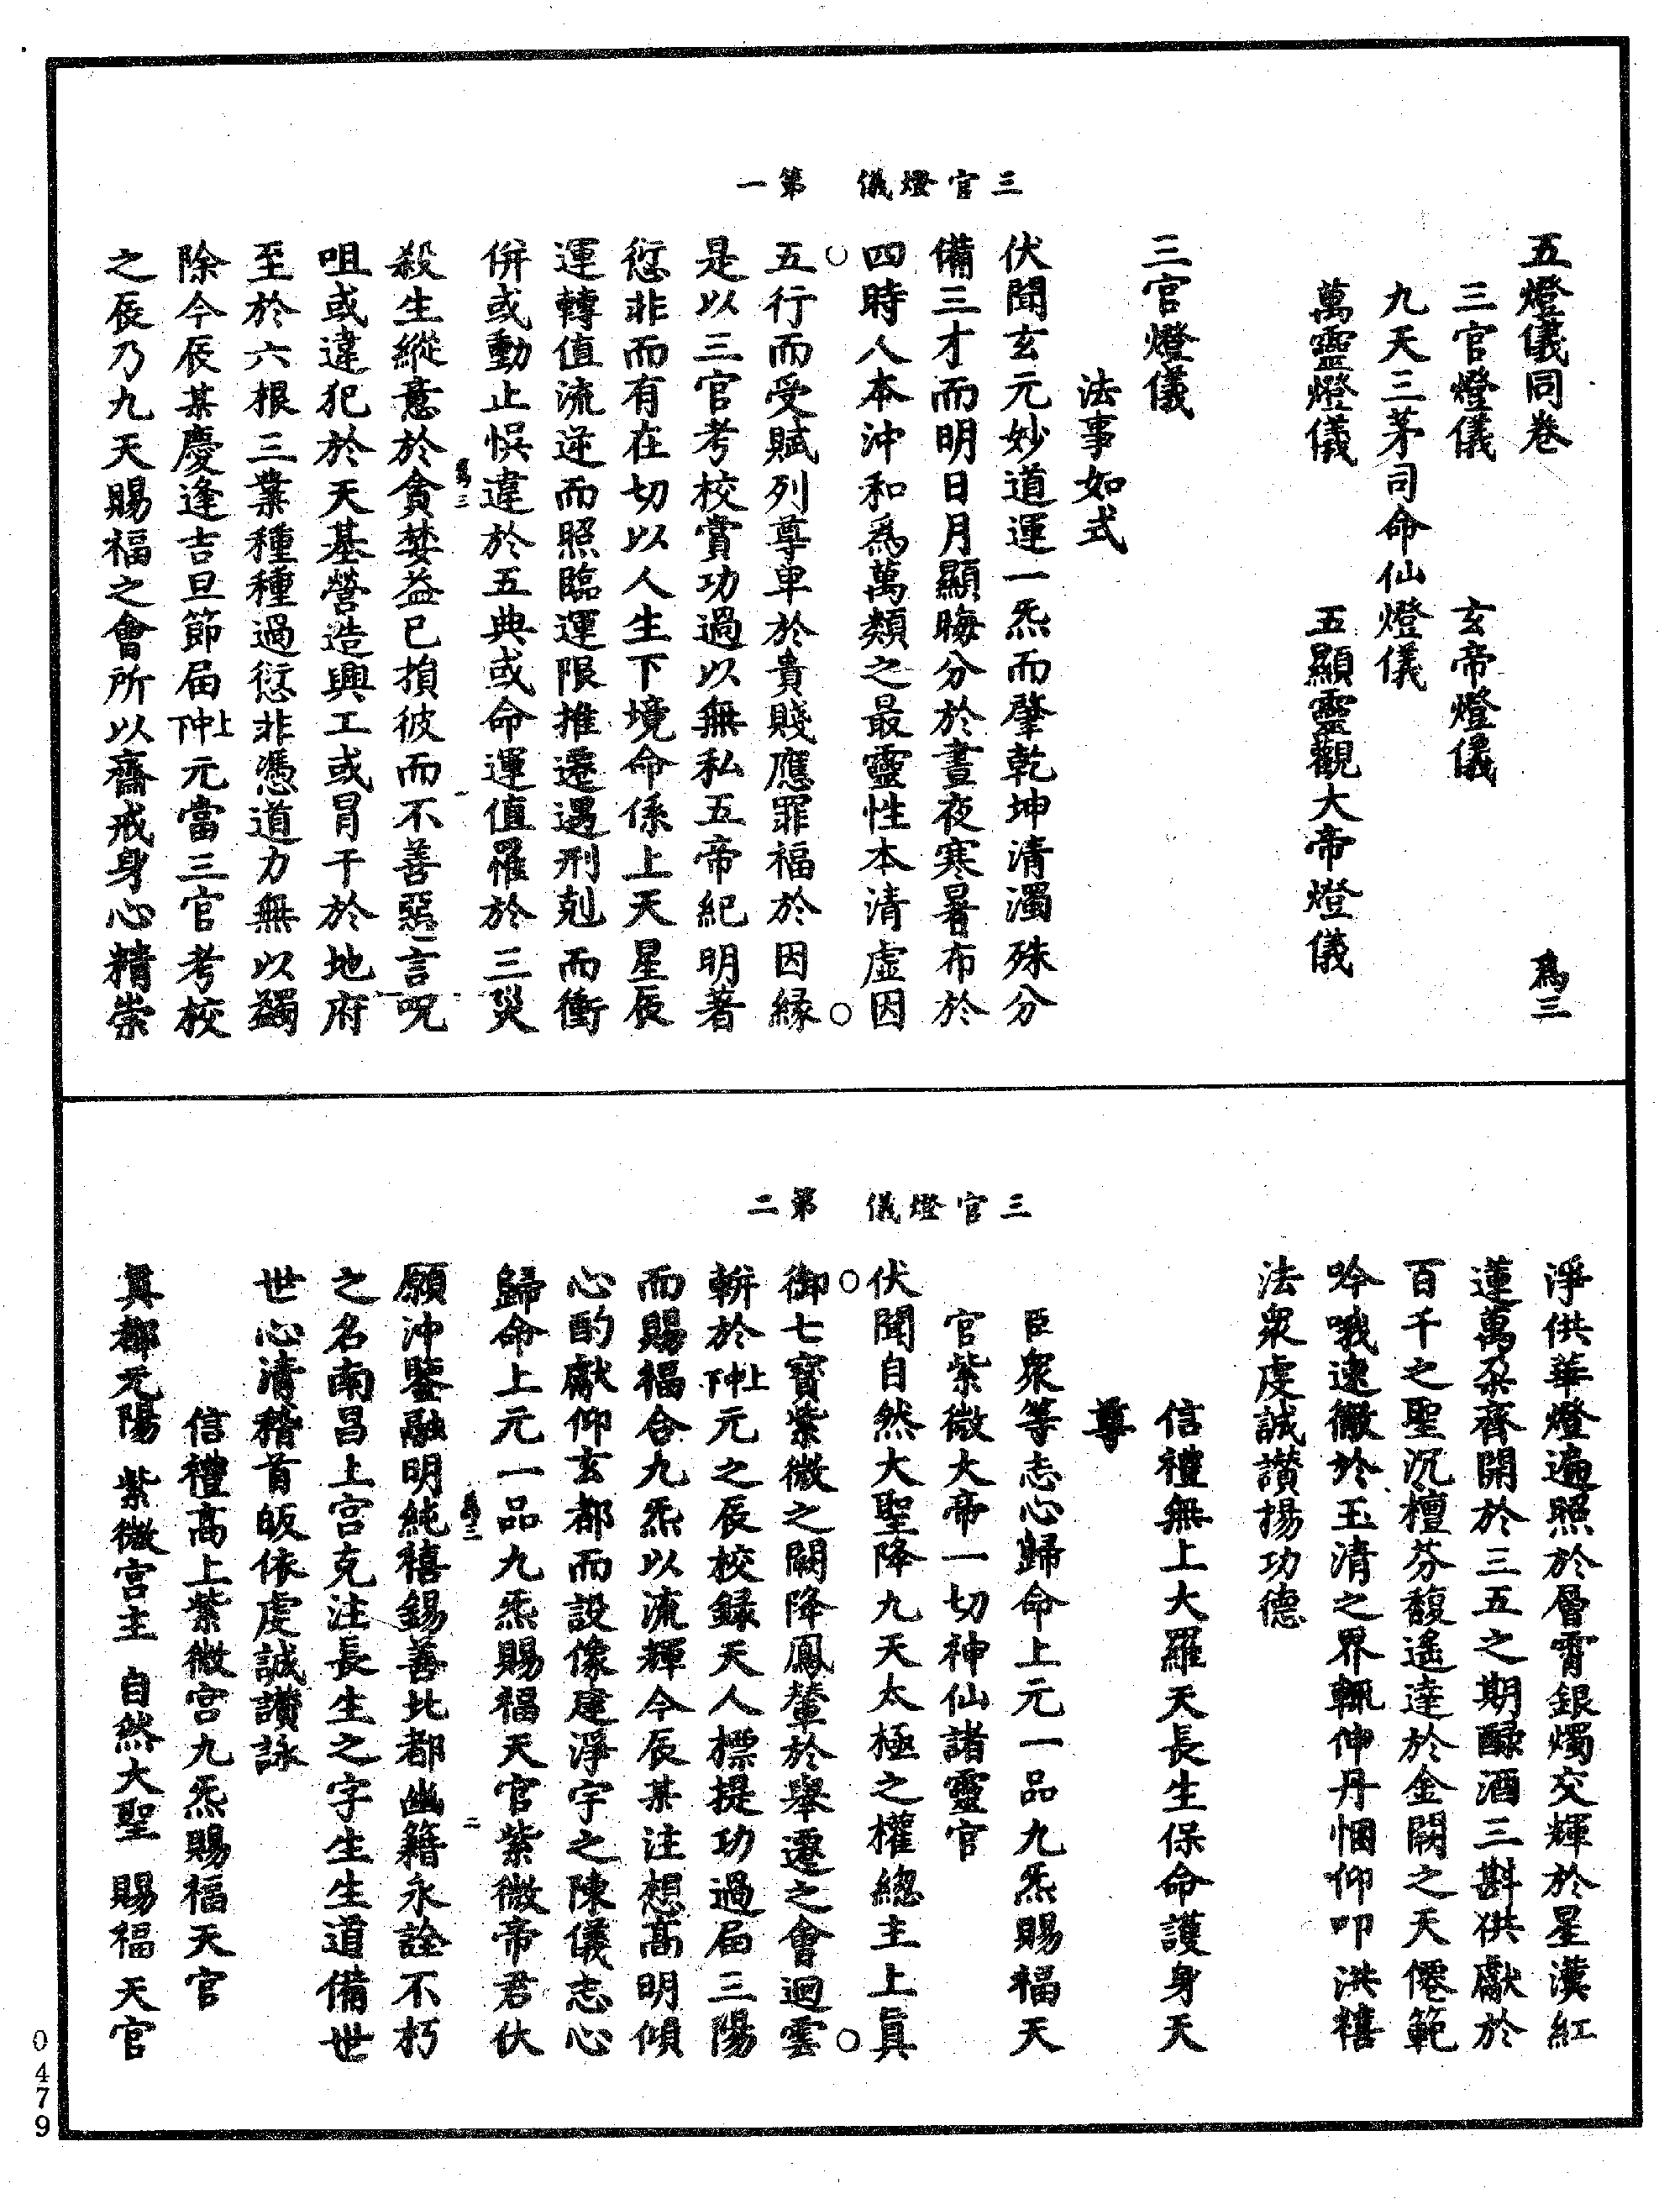 三官燈儀　第一
五燈儀同卷　爲三
三官燈儀　玄帝燈儀
九天三茅司命仙燈儀
萬靈燈儀　五顯靈觀大帝燈儀
三官燈儀
法事如式
伏聞玄元妙道運一炁而肇乾坤清濁殊分
備三才而明日月顯晦分於晝夜寒暑布於
四時人本沖和爲萬類之最靈性本清虛因
五行而受賦列尊卑於貴賤應罪福於因緣
是以三官考校賞功過以無私五帝紀明著
愆非而有在切以人生下境命係上天星辰
運轉值流逆而照臨運限推遷遇刑剋而衝
併或動止悞違於五典或命運值罹於三災
爲三
殺生縱意於貪婪益己損彼而不善惡言呪
咀或違犯於天基營造興工或冒干於地府
至於六根三業種種過愆非憑道力無以蠲
除今辰某慶逢吉旦節屆上中下元當三官考校
之辰乃九天賜福之會所以齋戒身心精崇
三官燈儀　第二
淨供華燈遍照於層霄銀燭交輝於星漢紅
蓮萬朶齊開於三五之期醁酒三斟供獻於
百千之聖沉檀芬馥遙達於金闕之天僊範
吟哦速徹於玉清之界輒伸丹悃仰叩洪禧
法衆虔誠讃揚功德
信禮無上大羅天長生保命護身天
尊
臣衆等志心歸命上元一品九炁賜福天
官紫微大帝一切神仙諸靈官
伏聞自然大聖降九天太極之權總主上眞
御七寶紫微之闕降鳳輦於舉遷之會迴雲
輧於上中下元之辰校録天人標提功過屆三陽
而賜福合九炁以流輝今辰某注想高明傾
心酌獻仰玄都而設像建淨宇之陳儀志心
歸命上元一品九炁賜福天官紫微帝君伏
爲三　二
願沖鑒融明純禧錫善北都幽籍永詮不朽
之名南昌上宮克注長生之字生生道備世
世心清稽首皈依虔誠讃詠
信禮高上紫微宮九炁賜福天官
眞都元陽　紫微宮主　自然大聖　賜福天官
0479